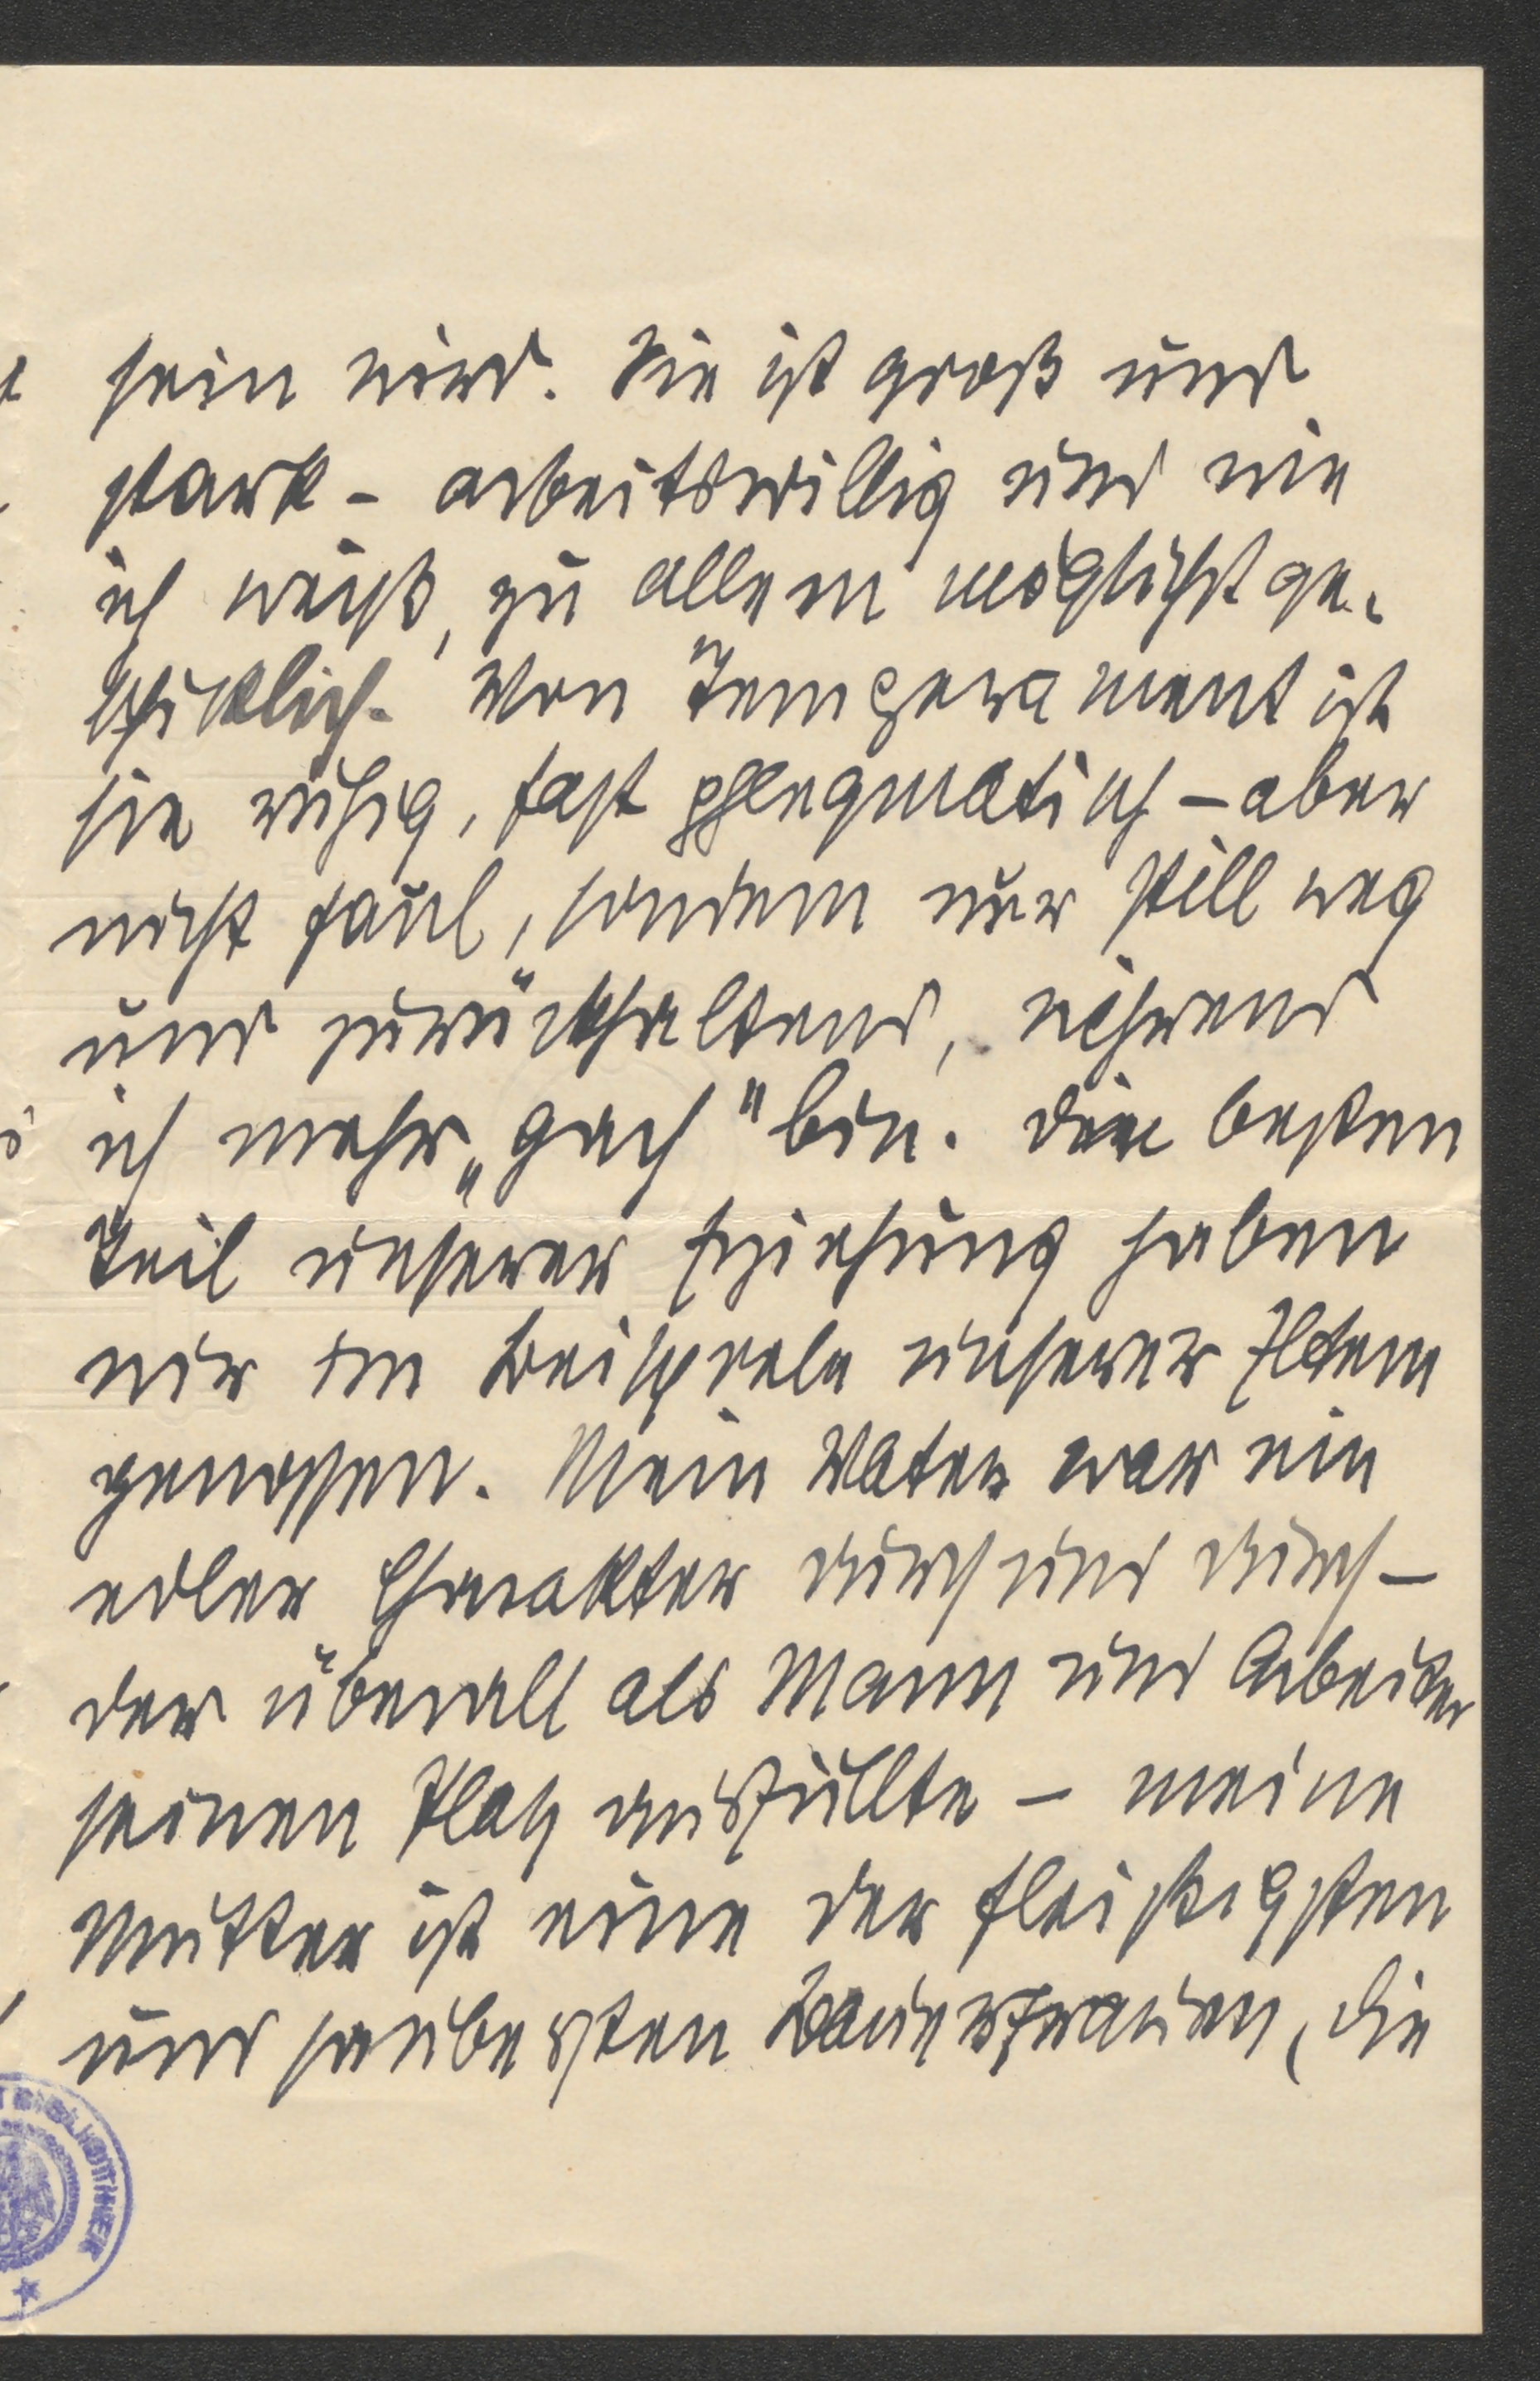 sein wird. Sie ist groß und
stark - arbeitswillig und wie
ich weiß, zu allem möglichst ge-
schicklich. Von Temperament ist
sie ruhig, fast phlegmatisch - aber
nicht faul, sondern nur still weg
und zurückhaltend, während
ich mehr „gach" bin. Die besten
Teil unserer Erziehung haben
wir im Beispiele unserer Eltern
genossen. Mein Vater war ein
edler Charakter durch und durch -
der überall als Mann und Arbeiter
seinen Platz ausfüllte - meine
Mutter ist eine der fleißigsten
und saubersten Bauersfrauen, die
BIBLIOTHEK